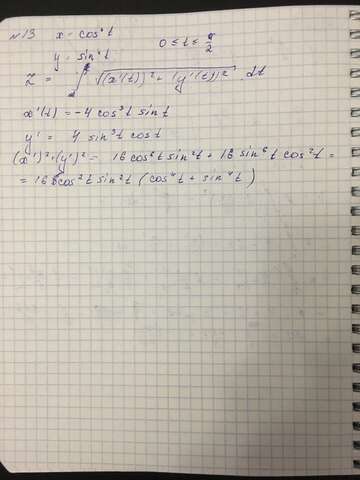 №13 x = cos⁴t
y = sin⁴t 0 ≤ t ≤ π/2
L = ∫ √((x'(t))² + (y'(t))²) dt
x'(t) = -4 cos³t sin t
y' = 4 sin³t cos t
(x')² + (y')² = 16 cos⁶t sin²t + 16 sin⁶t cos²t =
= 16 cos²t sin²t (cos⁴t + sin⁴t)